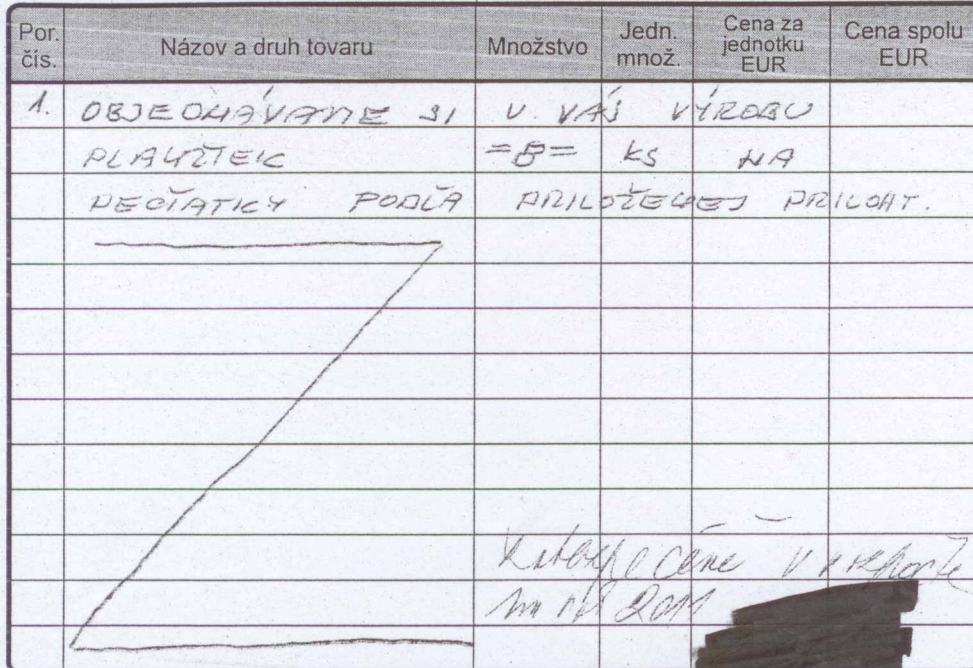 Por. čís. Názov a druh tovaru Množstvo Jedn. množ. Cena za jednotku EUR Cena spolu EUR
1. OBJEDNÁVAME SI U VÁS VÝROBU
PLANŽTEK =8= KS NA
PEČIATKY PODĽA PRILOŽENEJ PRILOHY.
o cene v
2011